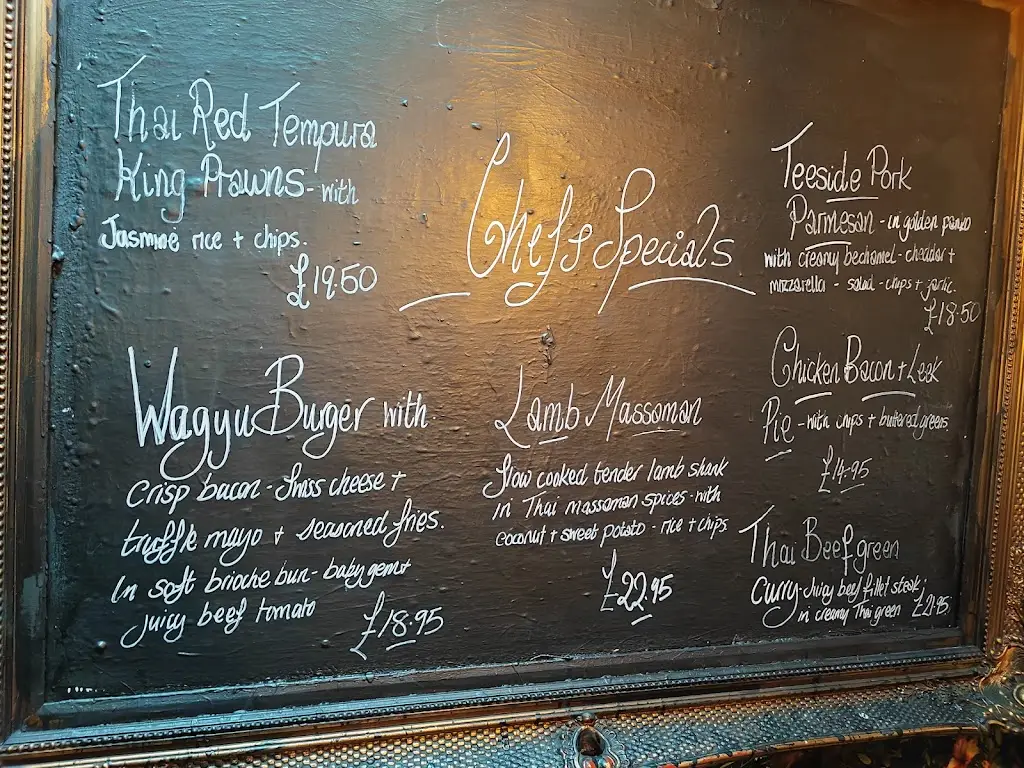 Chefs Specials
Thai Red Tempura
King Prawns - with
Jasmine rice + chips.
£19.50
Wagyu Burger with
crisp bacon - Swiss cheese +
truffle mayo + seasoned fries.
In soft brioche bun - baby gem +
juicy beef tomato
£18.95
Lamb Massaman
Slow cooked tender lamb shank
in Thai massaman spices - with
coconut + sweet potato - rice + chips
£22.95
Teeside Pork
Parmesan - in golden panko
with creamy bechamel - cheddar +
mozzarella - salad - chips + garlic.
£18.50
Chicken Bacon + Leek
Pie - with chips + buttered greens
£14.95
Thai Beef green
Curry - Juicy beef fillet steak;
in creamy Thai green £21.95